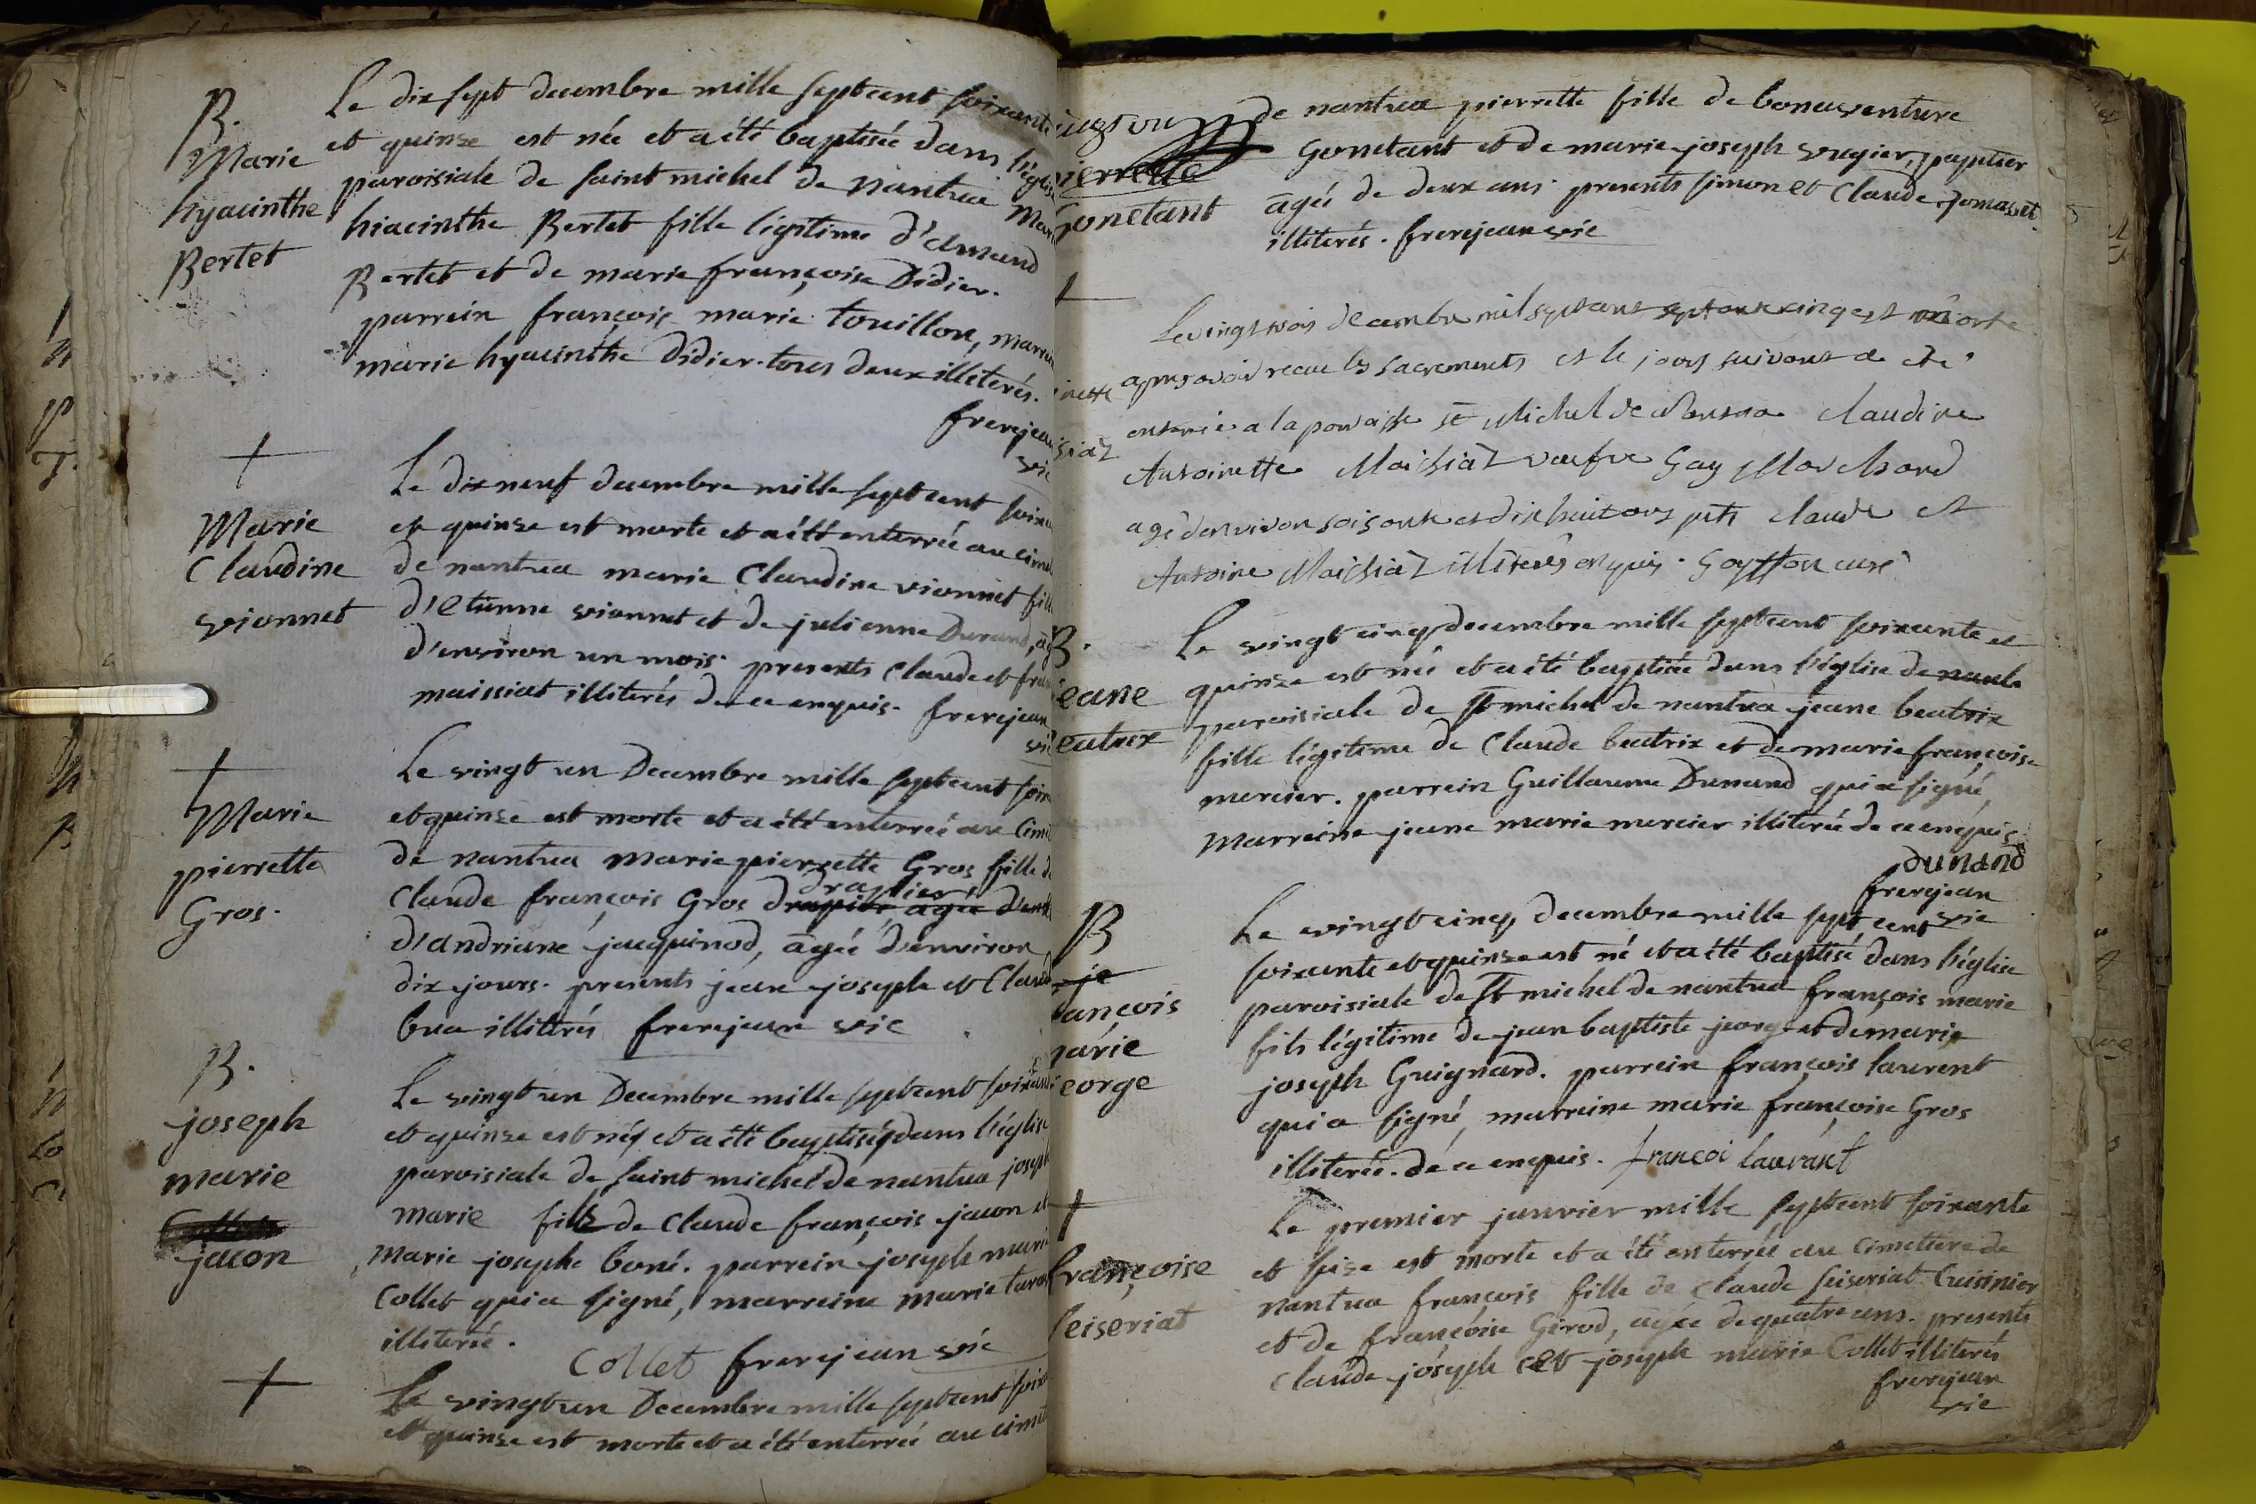 B.
Marie
hyacinthe
Bertet
Le dix sept decembre mille septcent soixante
et quinze est née et a été baptisée dans l'église
paroisiale de saint michel de Nantua Mar
hiacinthe Bertet fille légitime d'
Bertet et de marie françoise Didier.
parrein françois marie touillon, marrei
marie hyacinthe Didier. tous deux illiterés.
frerejean
vic
+
Marie
Claudine
vionnet
Le dix neuf decembre mille septcent soixa
et quinze est morte et a été enterrée au cime
de nantua marie Claudine vionnet fill
d'etienne vionnet et de julienne Durand, ag
d'environ un mois. presents Claude et fran
maissiat illiterés de ce enquis. frerejean
vic
+
Marie
pierrette
Gros.
Le vingt un Decembre mille septcent soix
et quinze est morte et a été enterrée au Cime
de nantua Marie pierrette Gros fille de
drapier
Claude françois Gros drapier agée d'en
d'andriane jacquinod, agée d'environ
dix jours. presents jean joseph et Claud
bua illiterés frerejean vic
B.
joseph
marie
jacon
Le vingt un Decembre mille septcent soixant
et quinze est né et a été baptisé dans l'église
paroisiale de saint michel de nantua joseph
marie fils de Claude françois jacon et
Marie josephe boné. parrein joseph marie
Collet qui a signé, marreine marie
illiterée.
Collet frerejean vic
+
Le vingt un Decembre mille septcent soix
et quinze est morte et a été enterrée au cimet
pierrette
Gonetant
de nantua pierrette fille de bonaventure
Gonetant et de marie joseph vugier, papetier
agée de deux ans. presents simon et Claude
illiterés. frerejean vic
+
Le vingt trois decembre mil sept cent septante cinq est morte
apres avoir recue les sacrements et le jour suivant a été
enterrée a la paroisse St Michel de Nantua Claudine
Antoinette Maissiat veufve Gay Marchand
agé d'environ soisante et dix huit ans pnts Claude et
Antoine Maissiat illiterés enquis. Goyffon curé
B.
jeane
beatrix
Le vingt cinq decembre mille septcent soixante et
quinze est née et a été baptisée dans l'église de nantu
paroisiale de St michel de nantua jeane beatrix
fille légitime de Claude beatrix et de marie françoise
mercier. parrein Guillaume Dunand qui a signé,
Marreine jeane marie mercier illiterée de ce enquis
DUNAND
frerejean
vic
B
je
ançois
marie
eorge
Le vingt cinq decembre mille sept cent
soixante et quinze est né et a été baptisé dans l'église
paroisiale de St michel de nantua françois marie
fils légitime de jean baptiste jeorge et de marie
joseph Guignard. parrein françois laurent
qui a signé, marreine marie françoise Gros
illiterée. de ce enquis. françoi laurant
+
françoise
seiseriat
Le premier janvier mille septcent soixante
et seize est morte et a été enterrée au Cimetiere de
nantua françois fille de Claude seiseriat Cuisinier
et de françoise Girod, agée de quatre ans. presents
Claude joseph et joseph marie Collet illiterés
frerejean
vic